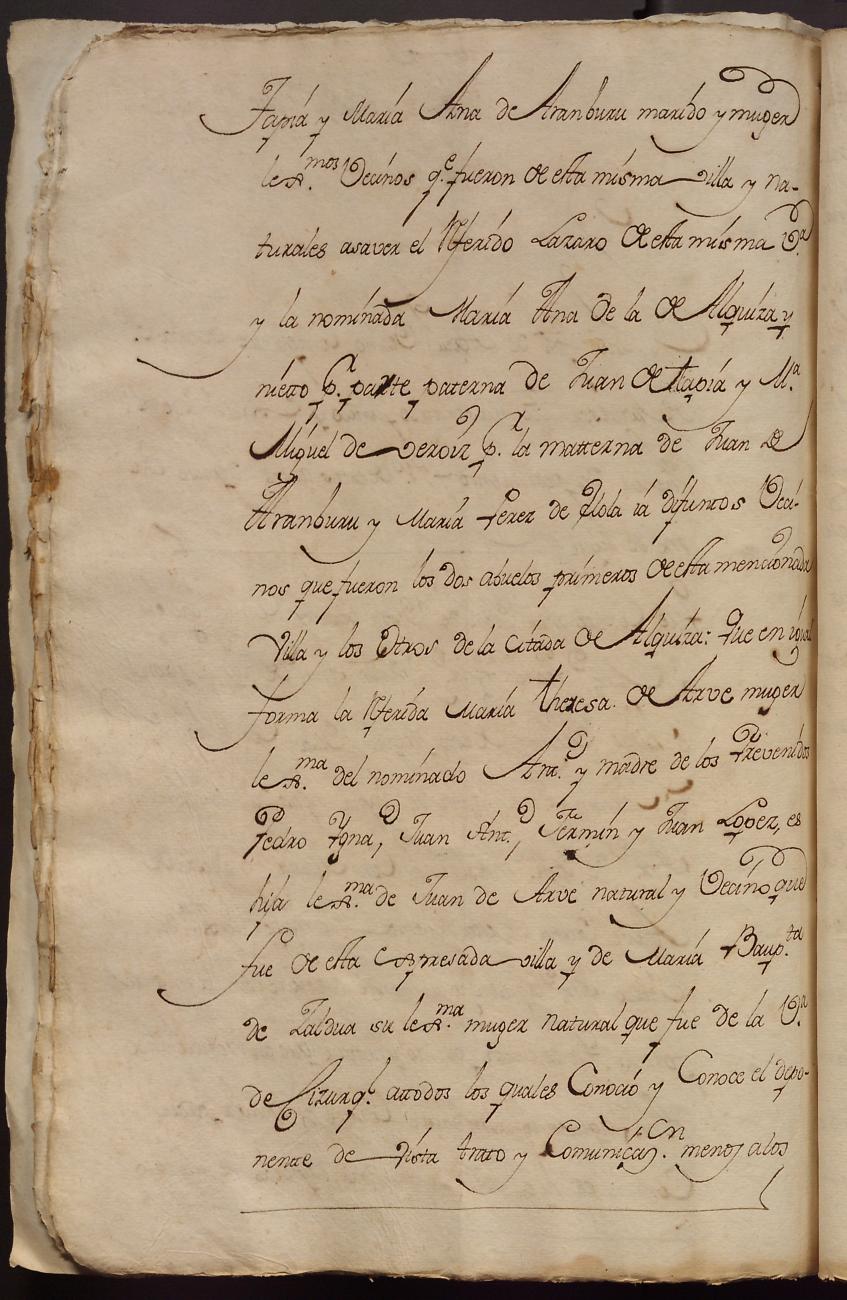 Tapia y María Ana de Aranburu marido y muger
lex.mos Vecinos q.e fueron de esta misma villa y na-
turales asaver el Referido Lazaro de esta misma V.a
y la nominada María Ana de la de Alquiza y
nieto p.r parte paterna de Juan de tapia y M.a
Miguel de veroiz p.r la matterna de Juan de
Aranburu y María Perez de Olola ia difuntos Veci-
nos que fueron los dos abuelos primeros de esta mencionada
villa y los otros de la citada de Alquiza: que en igual
forma la Referida María theresa de Arve muger
lex.ma del nominado Ant.o y madre de los Prevenidos
Pedro Ygna,o Juan Ant.,o Fermin y Juan Lopez, es
hija lex.ma de Juan de Arve natural y Vecino que
fue de esta expresada villa y de María Baup.ta
de Zaldua su lex.ma muger natural que fue de la V.a
de Cizurq.l atodos los quales Conoció y Conoce el depo-
nente de vista trato y Comunicaz.on menos alos